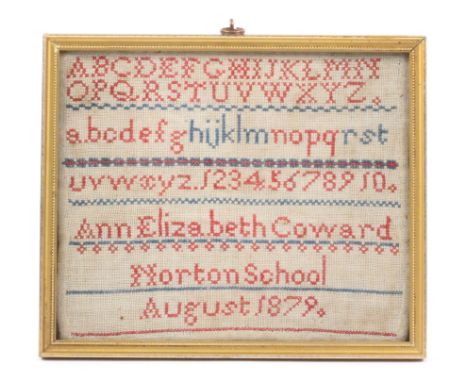 ABCDEFGHIJKLMN
OPQRSTUVWXYZ.
abcdefghijklmnopqrst
uvwxyz.12345678910.
Ann Elizabeth Coward
Norton School
August 1879.